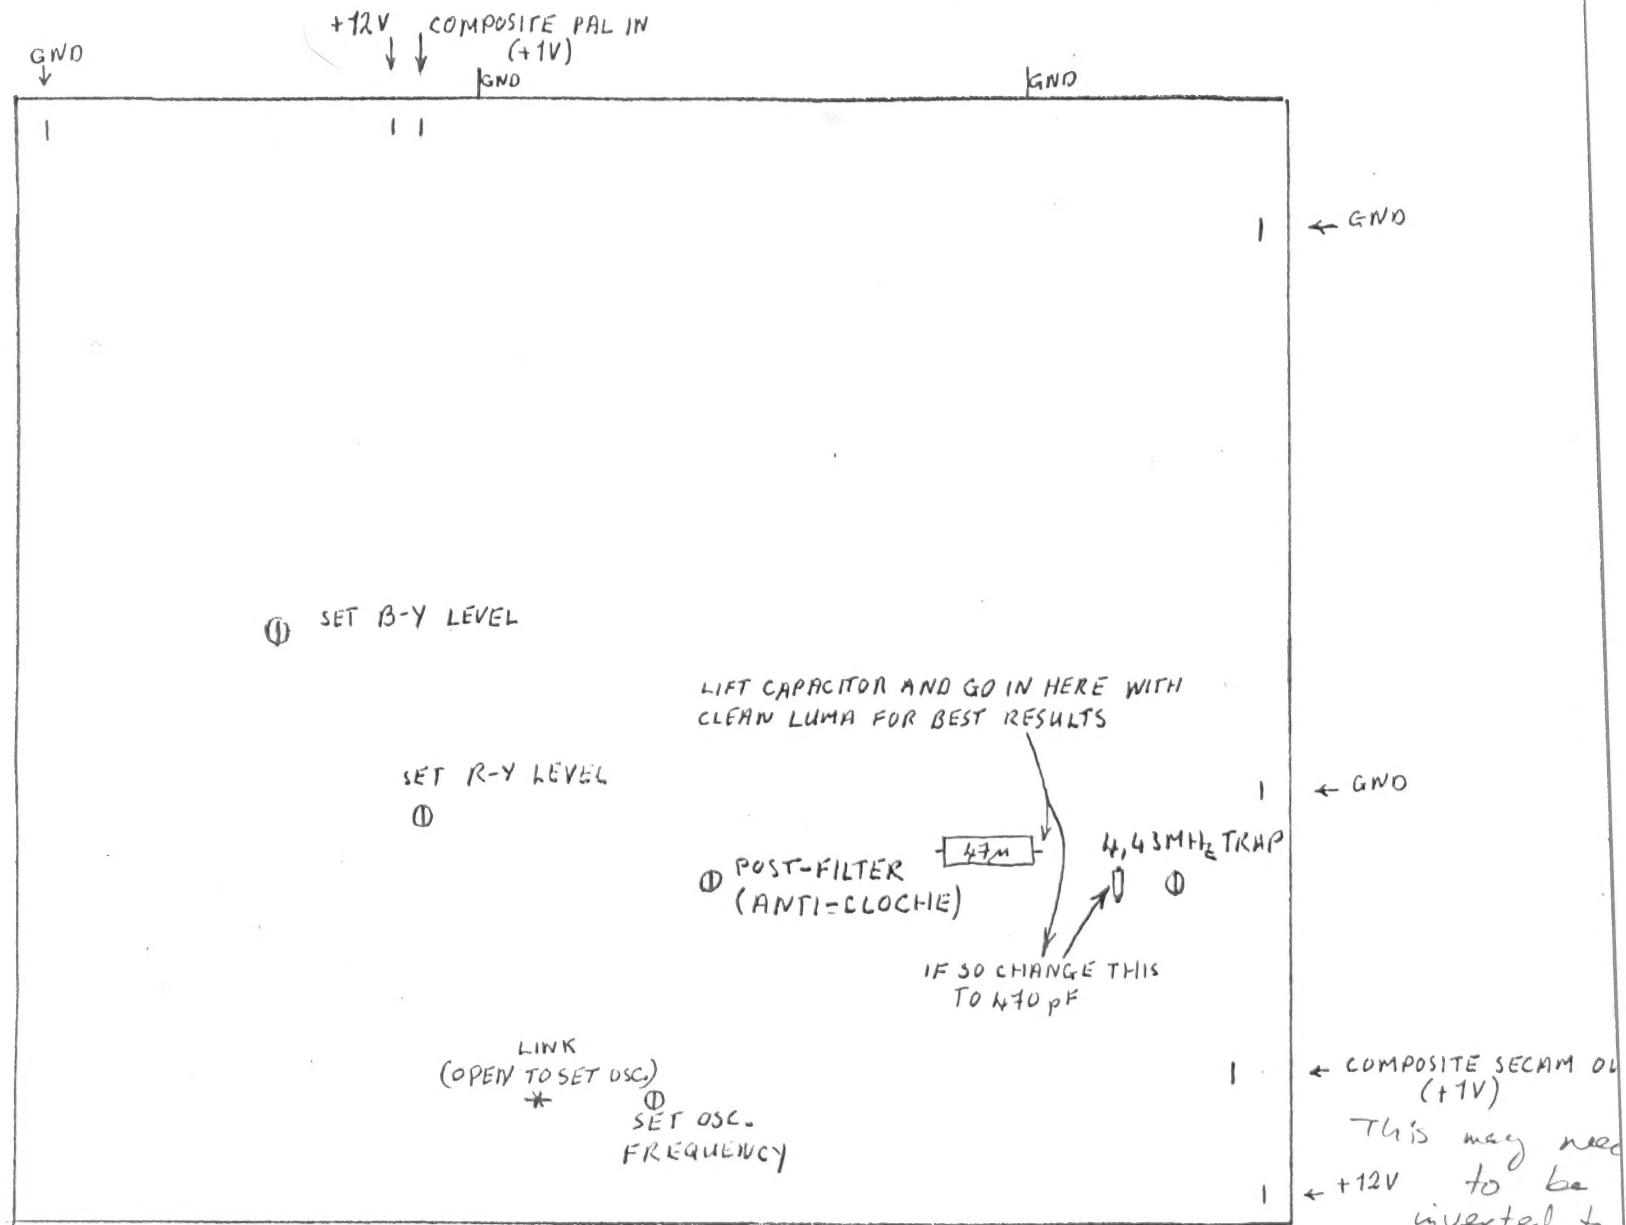 +12V
COMPOSITE PAL IN
(+1V)
GND
GND
GND
GND
SET B-Y LEVEL
LIFT CAPACITOR AND GO IN HERE WITH
CLEAN LUMA FOR BEST RESULTS
SET R-Y LEVEL
GND
47µ
4,43MHz TRAP
POST-FILTER
(ANTI-CLOCHE)
IF SO CHANGE THIS
TO 470pF
LINK
(OPEN TO SET OSC.)
SET OSC.
FREQUENCY
COMPOSITE SECAM OU
(+1V)
This may need
+12V
to be
inverted